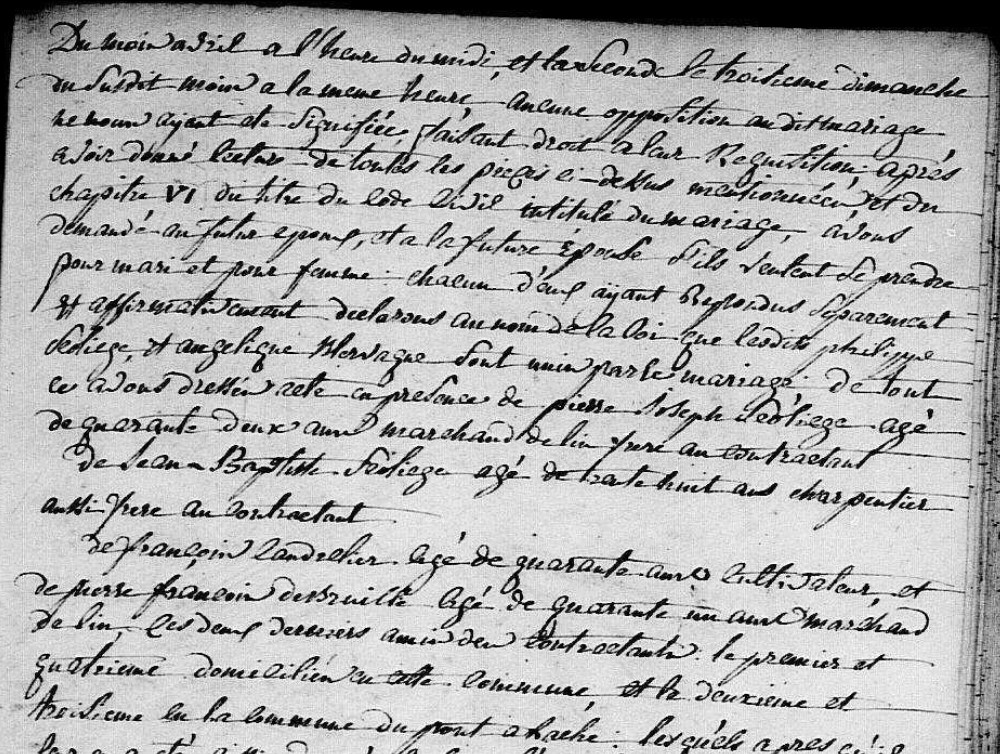 Du mois avril a l'heure du midi, et la seconde le troisieme dimanche
du susdit mois a la meme heure, aucune opposition audit mariage
ne nous ayant ete signifiée, faisant droit a leur Requisition. après
avoir donné lecture de toutes les pieçes ci-dessus mentionnées et du
chapitre VI du titre du Code Civil intitulé du mariage, avons
demandé au futur epoux, et a la future Epouse s'ils veulent se prendre
pour mari et pour femme. chacun d'eux aÿant Repondus separement
et affirmativement declarons au nom de la loi que lesdits philippe
et angelique sont unis par le mariage. de tout
ce avons dressés acte en presence de pierre Joseph agé
de quarante deux ans marchand de lin frere au contractant
de Jean Baptiste agé de trente huit ans charpentier
aussi frere au contractant
de françois Landrelier agé de quarante ans cultivateur, et
de pierre françois agé de quarante un ans marchand
de lin, les deux derniers amis des contractants. le premier et
quatrieme domiciliés en cette commune, et le deuxieme et
troisieme en la commune du pont a : lesquels apres qu'il